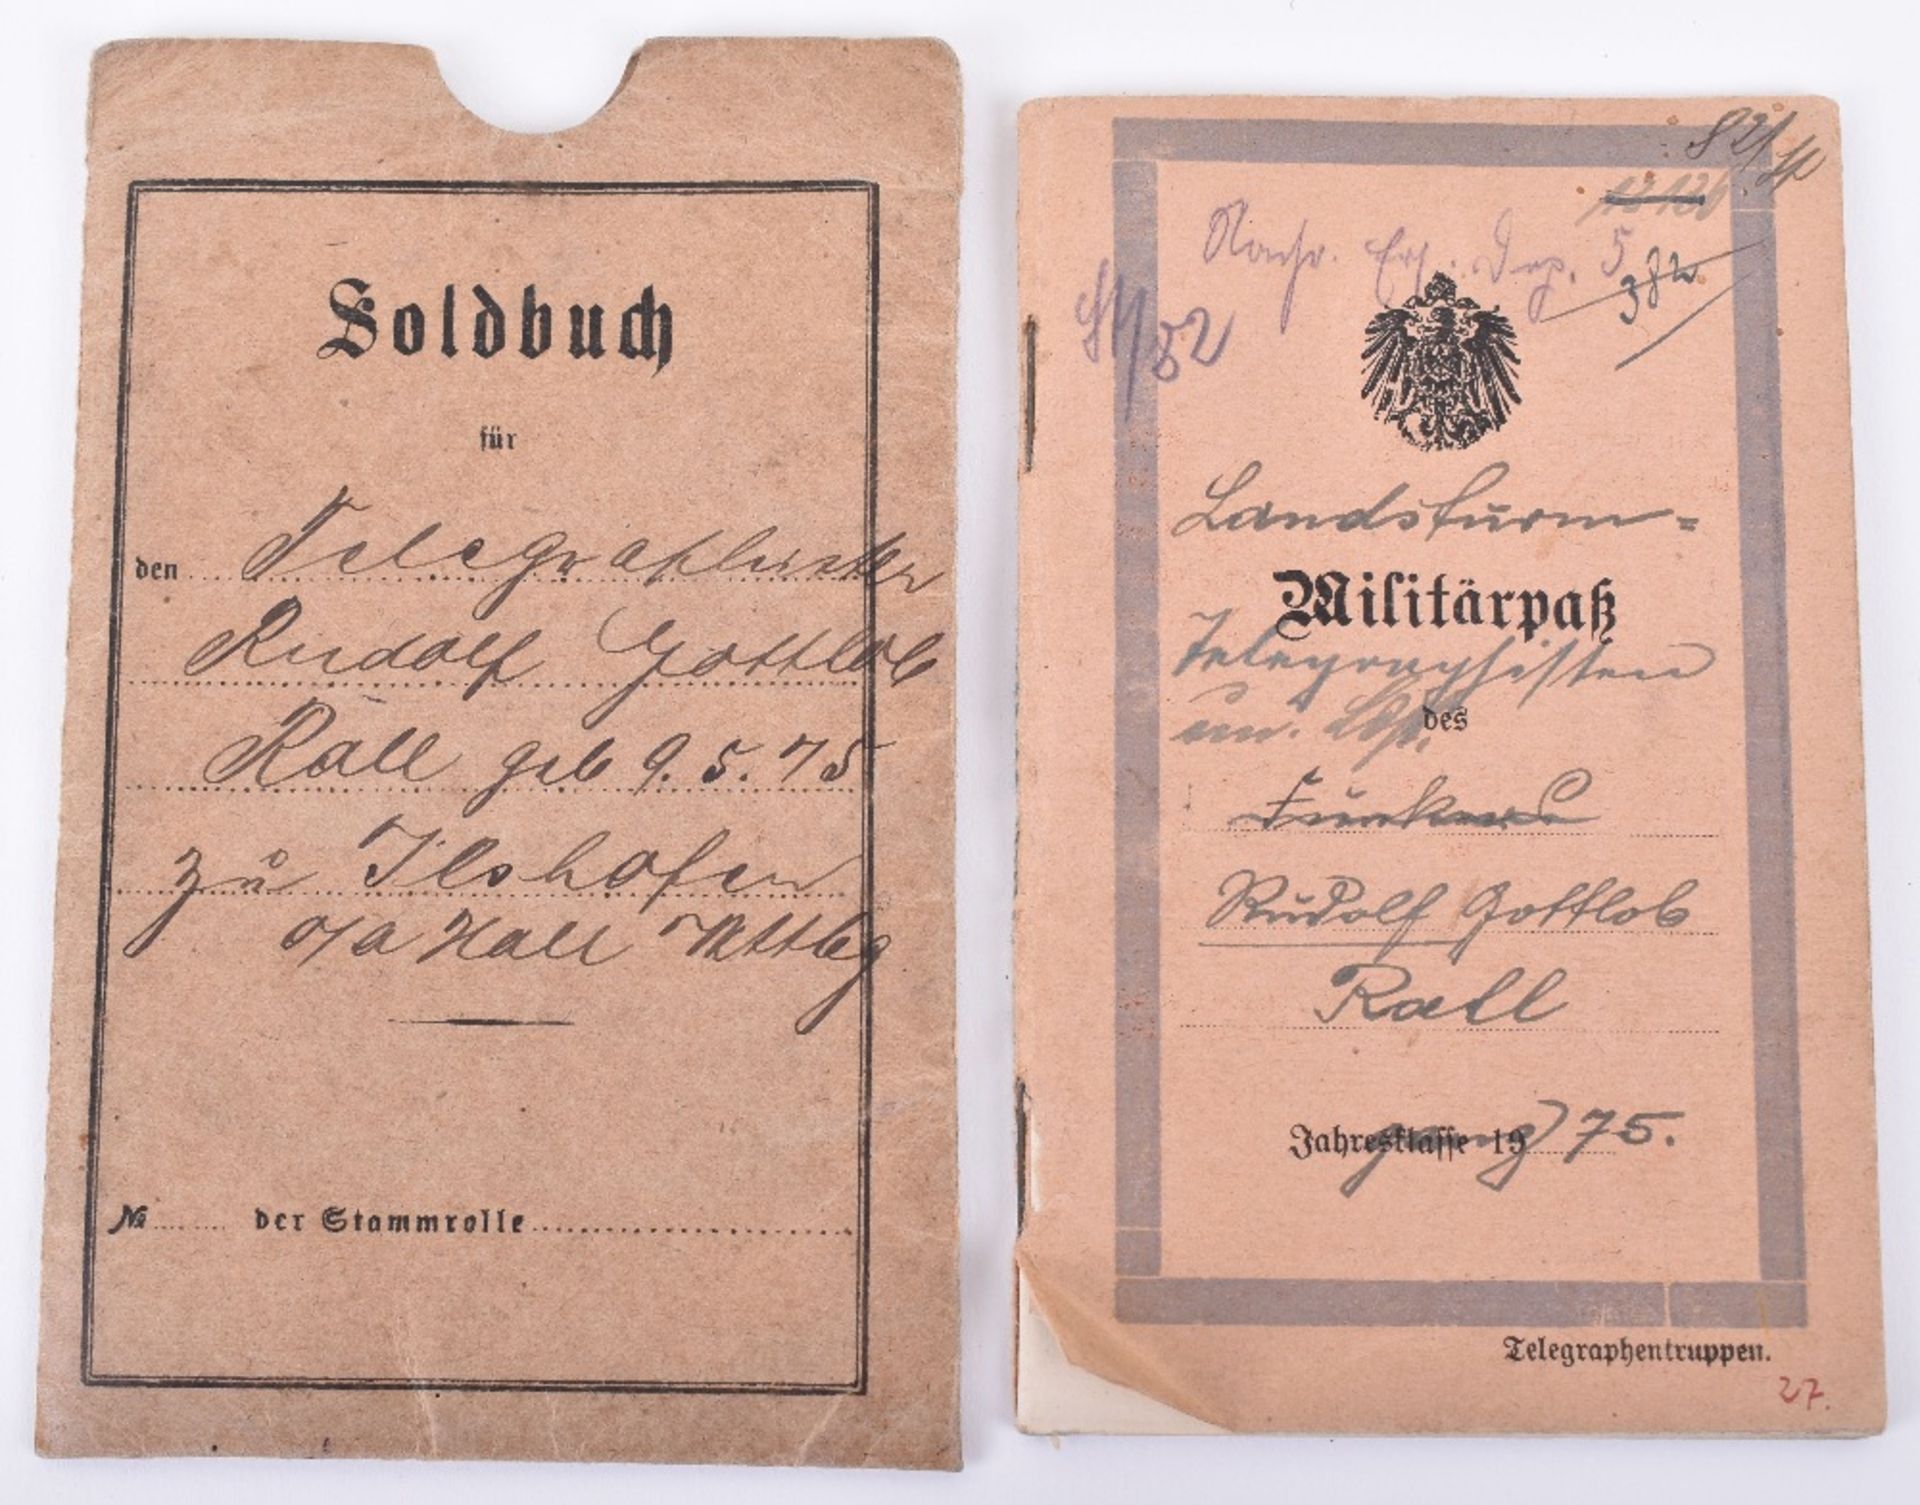 Soldbuch
für
den Telegraphisten
Rudolf Gottlob
Rall geb 9. 5. 75
zu Ilshofen
o/a Hall Wttbg
№ der Stammrolle
82/
Nachr. Ers. Dep. 5
382
/82
Landsturm-
Militärpaß
Telegraphisten
des
Funkers
Rudolf Gottlob
Rall
Jahresklasse 19 gang 75.
Telegraphentruppen.
27.